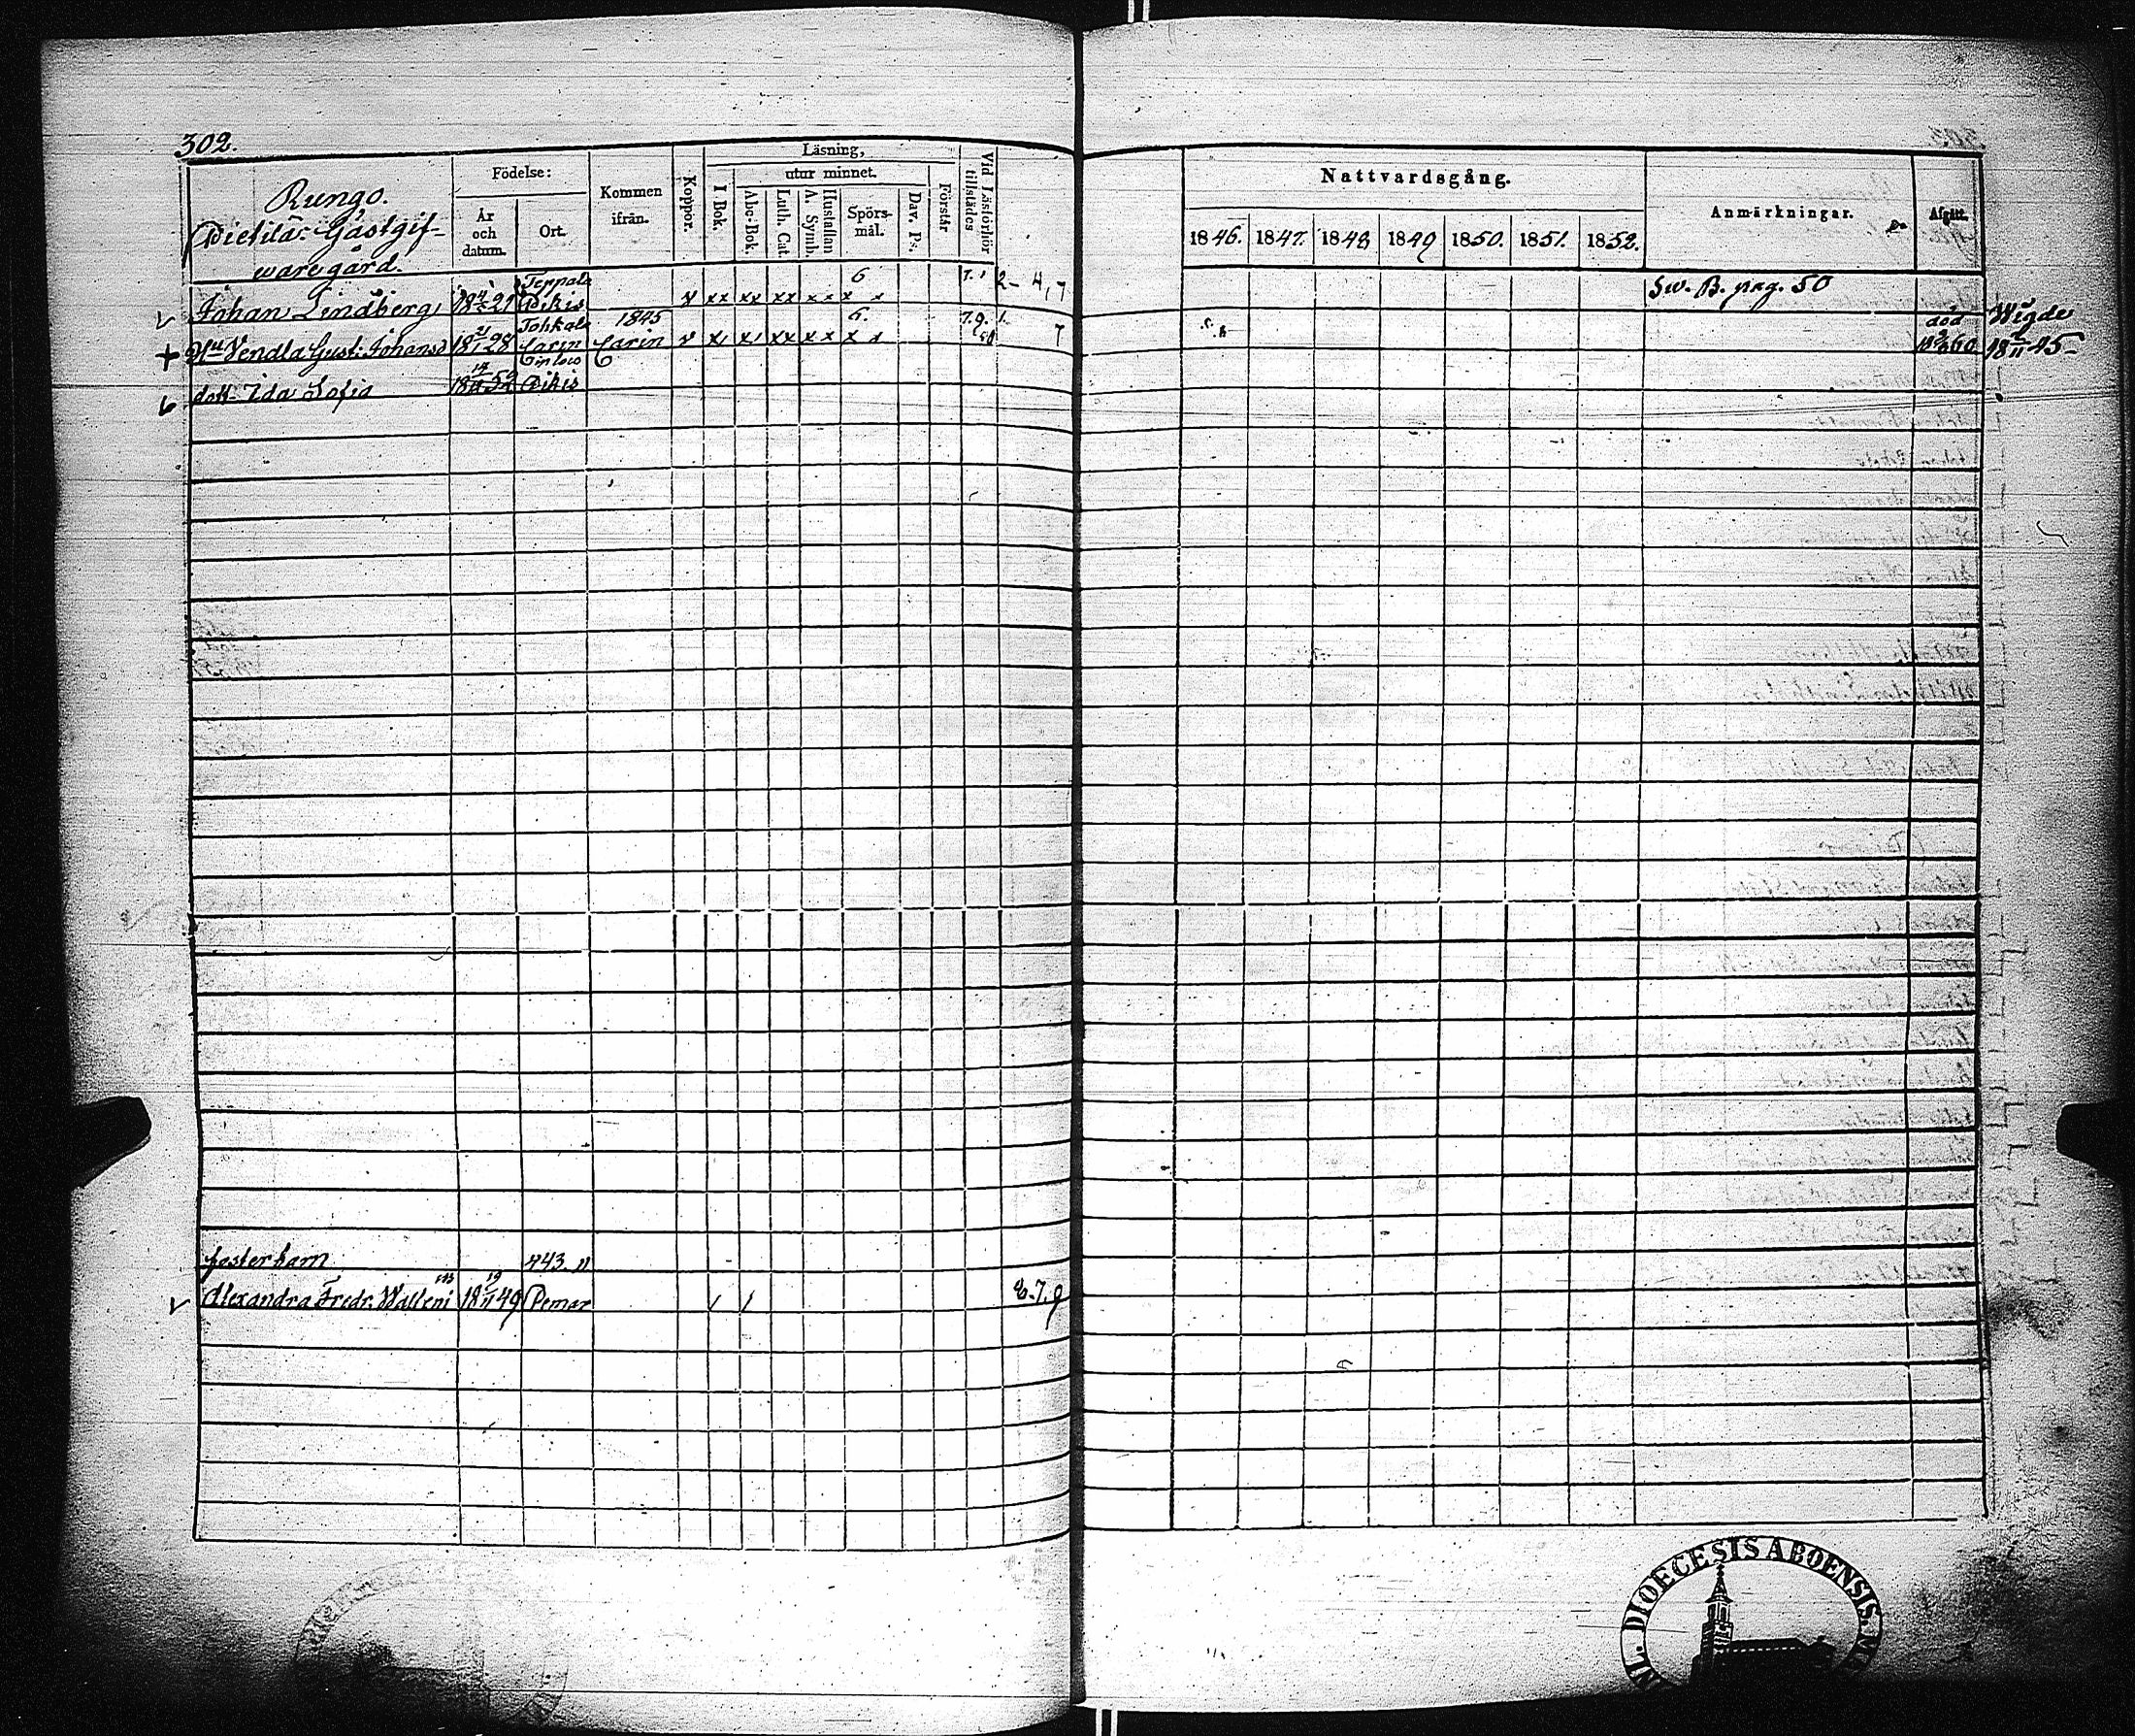 302.
Rungo.
Gästgif-
waregård.
Födelse:
År
och
datum.
Ort.
Kommen
ifrån.
Koppor.
Läsning,
I Bok.
utur minnet.
Abc-Bok.
Luth. Cat.
Hustaflan
A. Symb.
Spörs-
mål.
Dav. Ps.
Förstår
Vid Läsförhör
tillstädes
Nattvardsgång.
1846. 1847. 1848 1849 1850. 1851. 1852.
Anmärkningar.
Afgått.
Johan Lindberg 18 4/5 21 Teppala Pikis v xx xx xx x x x x 6 7.1 2- 4,7
Sw. B. pag. 50
+ Hu Vendla Gust: Johansd 18 21/1 28 Tohkala Carin 1845 Carin v x xx x x x x 6. 7.9.1. 58 7
död 60 Wigde 18 2/11 45
dott. Ida Sofia 18 52 Pikis
fosterbarn 443.
Alexandra Fredr. Walleni 18 19/11 49 Pemar 6.7.9
DIOECESIS ABOENSIS